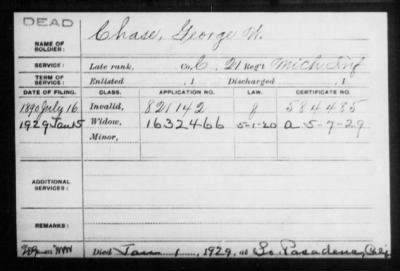 DEAD
NAME OF SOLDIER: Chase, George W.
SERVICE: Late rank, Co. C, 21 Reg't Mich Inf
TERM OF SERVICE: Enlisted , 1 Discharged , 1
DATE OF FILING. CLASS. APPLICATION NO. LAW. CERTIFICATE NO.
1890 July 16 Invalid, 821142 g 584485
1929 Jan 15 Widow, 1632466 5-1-20 a 5-7-29
Minor,
ADDITIONAL SERVICES:
REMARKS:
Died Jan 1, 1929, at So. Pasadena, Calif